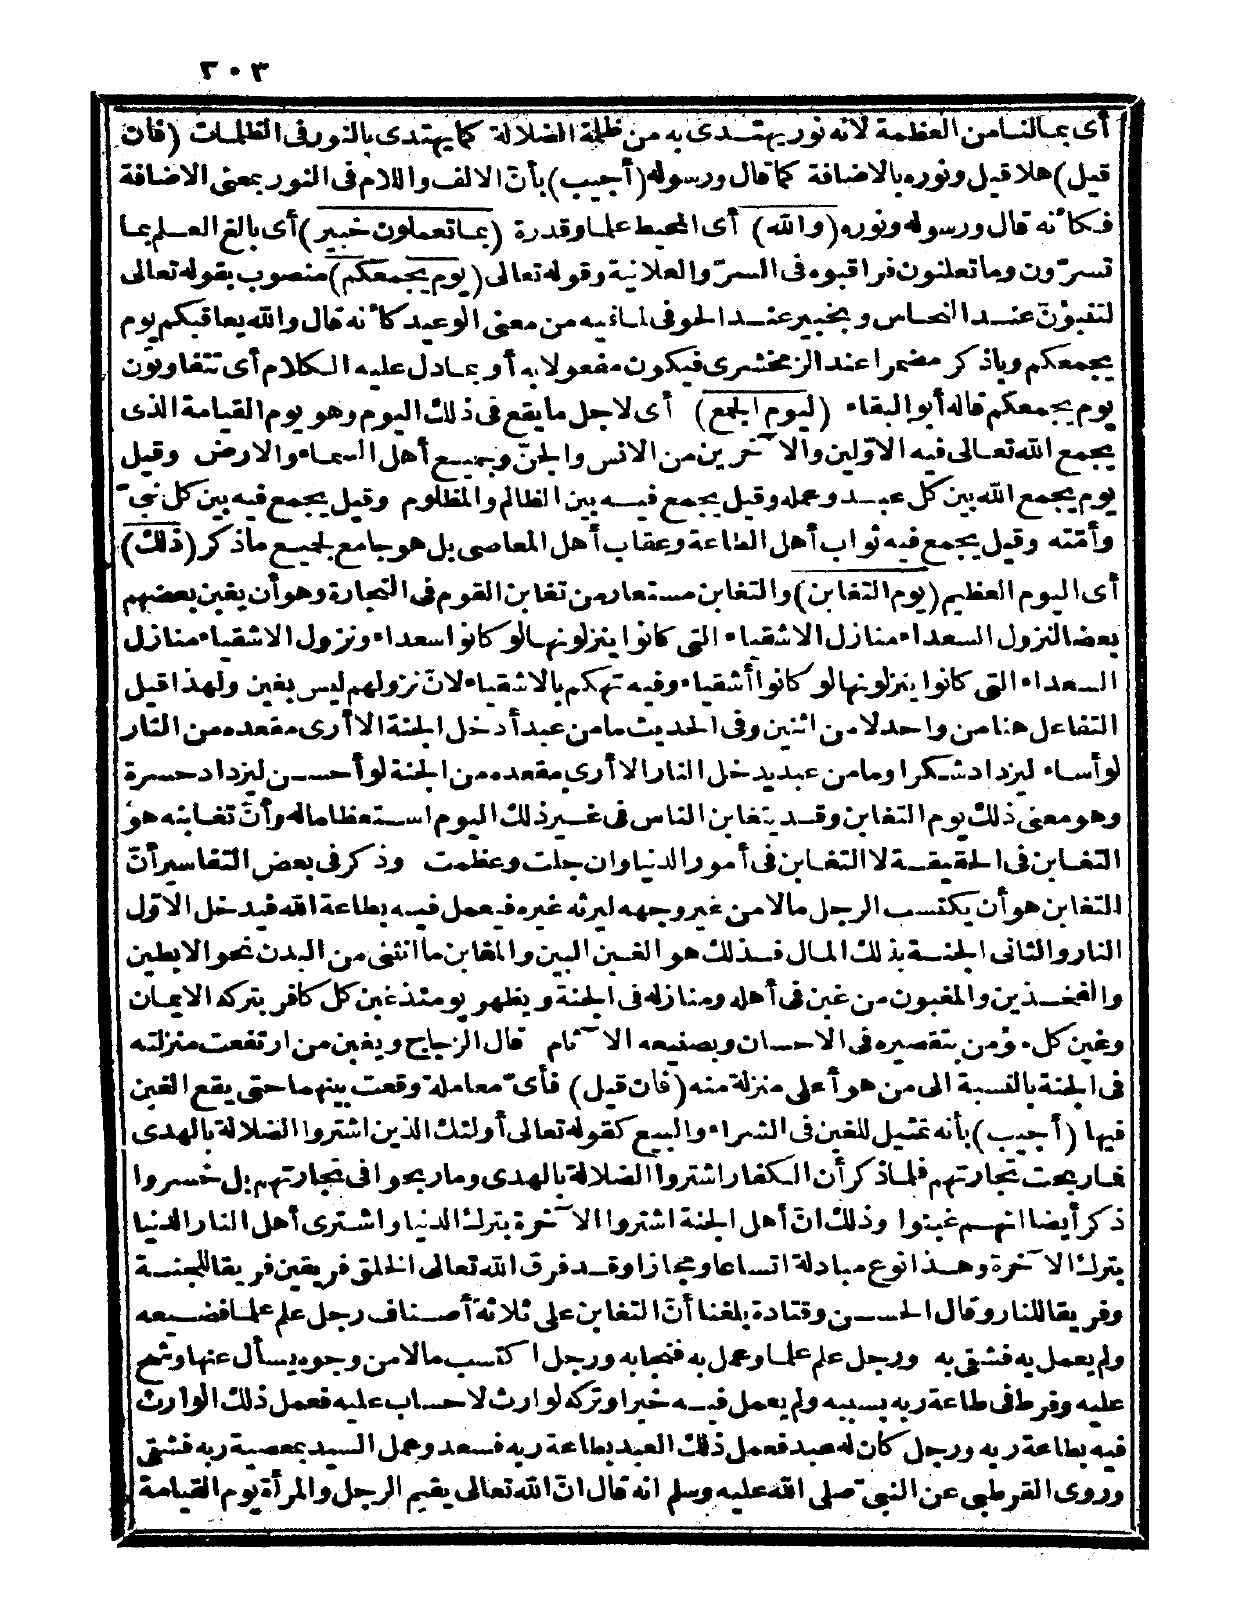 ٣٠٣
أى بما لنا من العظمة لانه نور يهتدى به من ظلمة الضلالة كما يهتدى بالنور فى الظلمات (فان
قيل) هلا قيل ونوره بالاضافة كما قال ورسوله (أجيب) بأنّ الالف واللام فى النور بمعنى الاضافة
فكأنه قال ورسوله ونوره (والله) أى المحيط علما وقدرة (بما تعملون خبير) أى بالغ العلم بما
تسرّون وما تعلنون فراقبوه فى السرّ والعلانية وقوله تعالى (يوم يجمعكم) منصوب بقوله تعالى
لتنبؤنّ عند النحاس وبخبير عند الحوفى لما فيه من معنى الوعيد كأنه قال والله يعاقبكم يوم
يجمعكم وباذكر مضمرا عند الزمخشرى فيكون مفعولا به أو بما دل عليه الكلام أى تتفاوتون
يوم يجمعكم قاله أبو البقاء (ليوم الجمع) أى لاجل ما يقع فى ذلك اليوم وهو يوم القيامة الذى
يجمع الله تعالى فيه الاوّلين والآخرين من الانس والجنّ وجميع أهل السماء والارض وقيل
يوم يجمع الله بين كل عبد وعمله وقيل يجمع فيه بين الظالم والمظلوم وقيل يجمع فيه بين كل نبىّ
وأمّته وقيل يجمع فيه ثواب أهل الطاعة وعقاب أهل المعاصى بل هو جامع لجميع ما ذكر (ذلك)
أى اليوم العظيم (يوم التغابن) والتغابن مستعار من تغابن القوم فى التجارة وهو أن يغبن بعضهم
بعضا لنزول السعداء منازل الاشقياء التى كانوا ينزلونها لو كانوا سعداء ونزول الاشقياء منازل
السعداء التى كانوا ينزلونها لو كانوا أشقياء وفيه تهكم بالاشقياء لانّ نزولهم ليس بغبن ولهذا قيل
التفاعل هنا من واحد لا من اثنين وفى الحديث ما من عبد أدخل الجنة الا أرى مقعده من النار
لو أساء ليزداد شكرا وما من عبد يدخل النار الا أرى مقعده من الجنة لو أحسن ليزداد حسرة
وهو معنى ذلك يوم التغابن وقد يتغابن الناس فى غير ذلك اليوم استعظاما له وأنّ تغابنه هو
التغابن فى الحقيقة لا التغابن فى أمور الدنيا وان جلت وعظمت وذكر فى بعض التفاسير أنّ
التغابن هو أن يكتسب الرجل مالا من غير وجهه ليرثه غيره فيعمل فيه بطاعة الله فيدخل الاوّل
النار والثانى الجنة بذلك المال فذلك هو الغبن البين والمغابن ما انثنى من البدن نحو الابطين
والفخذين والمغبون من غبن فى أهله ومنازله فى الجنة ويظهر يومئذ غبن كل كافر بتركه الايمان
وغبن كل مؤمن بتقصيره فى الاحسان وبصنيعه الآثام قال الزجاج ويغبن من ارتفعت منزلته
فى الجنة بالنسبة الى من هو أعلى منزلة منه (فان قيل) فأىّ معاملة وقعت بينهما حتى يقع الغبن
فيها (أجيب) بأنه تمثيل للغبن فى الشراء والبيع كقوله تعالى أولئك الذين اشتروا الضلالة بالهدى
فما ربحت تجارتهم فلما ذكر أن الكفار اشتروا الضلالة بالهدى وما ربحوا فى تجارتهم بل خسروا
ذكر أيضا انهم غبنوا وذلك انّ أهل الجنة اشتروا الآخرة بترك الدنيا واشترى أهل النار الدنيا
بترك الآخرة وهذا نوع مبادلة اتساعا ومجازا وقد فرق الله تعالى الخلق فريقين فريقا للجنة
وفريقا للنار وقال الحسن وقتادة بلغنا أنّ التغابن على ثلاثة أصناف رجل علم علما فضيعه
ولم يعمل به فشقى به ورجل علم علما وعمل به فنجا به ورجل اكتسب مالا من وجوه يسأل عنها وشح
عليه وفرط فى طاعة ربه بسببه ولم يعمل فيه خيرا وتركه لوارث لا حساب عليه فعمل ذلك الوارث
فيه بطاعة ربه ورجل كان له عبد فعمل ذلك العبد بطاعة ربه فسعد وعمل السيد بمعصية ربه فشقى
وروى القرطبى عن النبىّ صلى الله عليه وسلم انه قال انّ الله تعالى يقيم الرجل والمرأة يوم القيامة